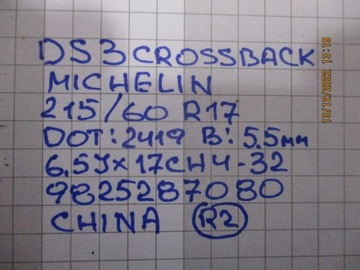 DS3 CROSSBACK
MICHELIN
215/60 R17
DOT:2419 B:5.5mm
6.5Jx17CH4-32
9825287080
CHINA R2